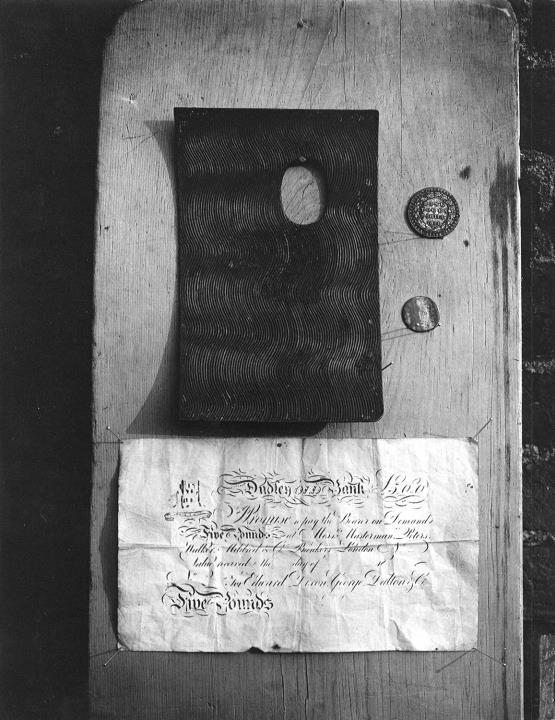 Dudley Bank
I Promise to pay the Bearer on Demand
Five Pounds at Messrs. Masterman, Peters,
Walker Mildred & Co. Bankers London
Value received the day of
For Edward Dixon George Dalton & Co.
Five Pounds